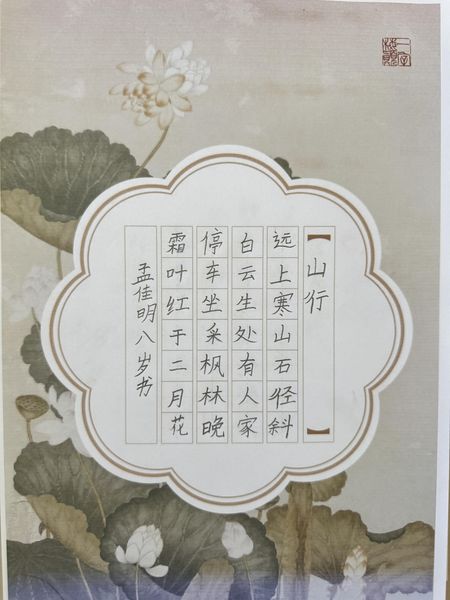 【山行】
远上寒山石径斜
白云生处有人家
停车坐采枫林晚
霜叶红于二月花
孟佳明八岁书